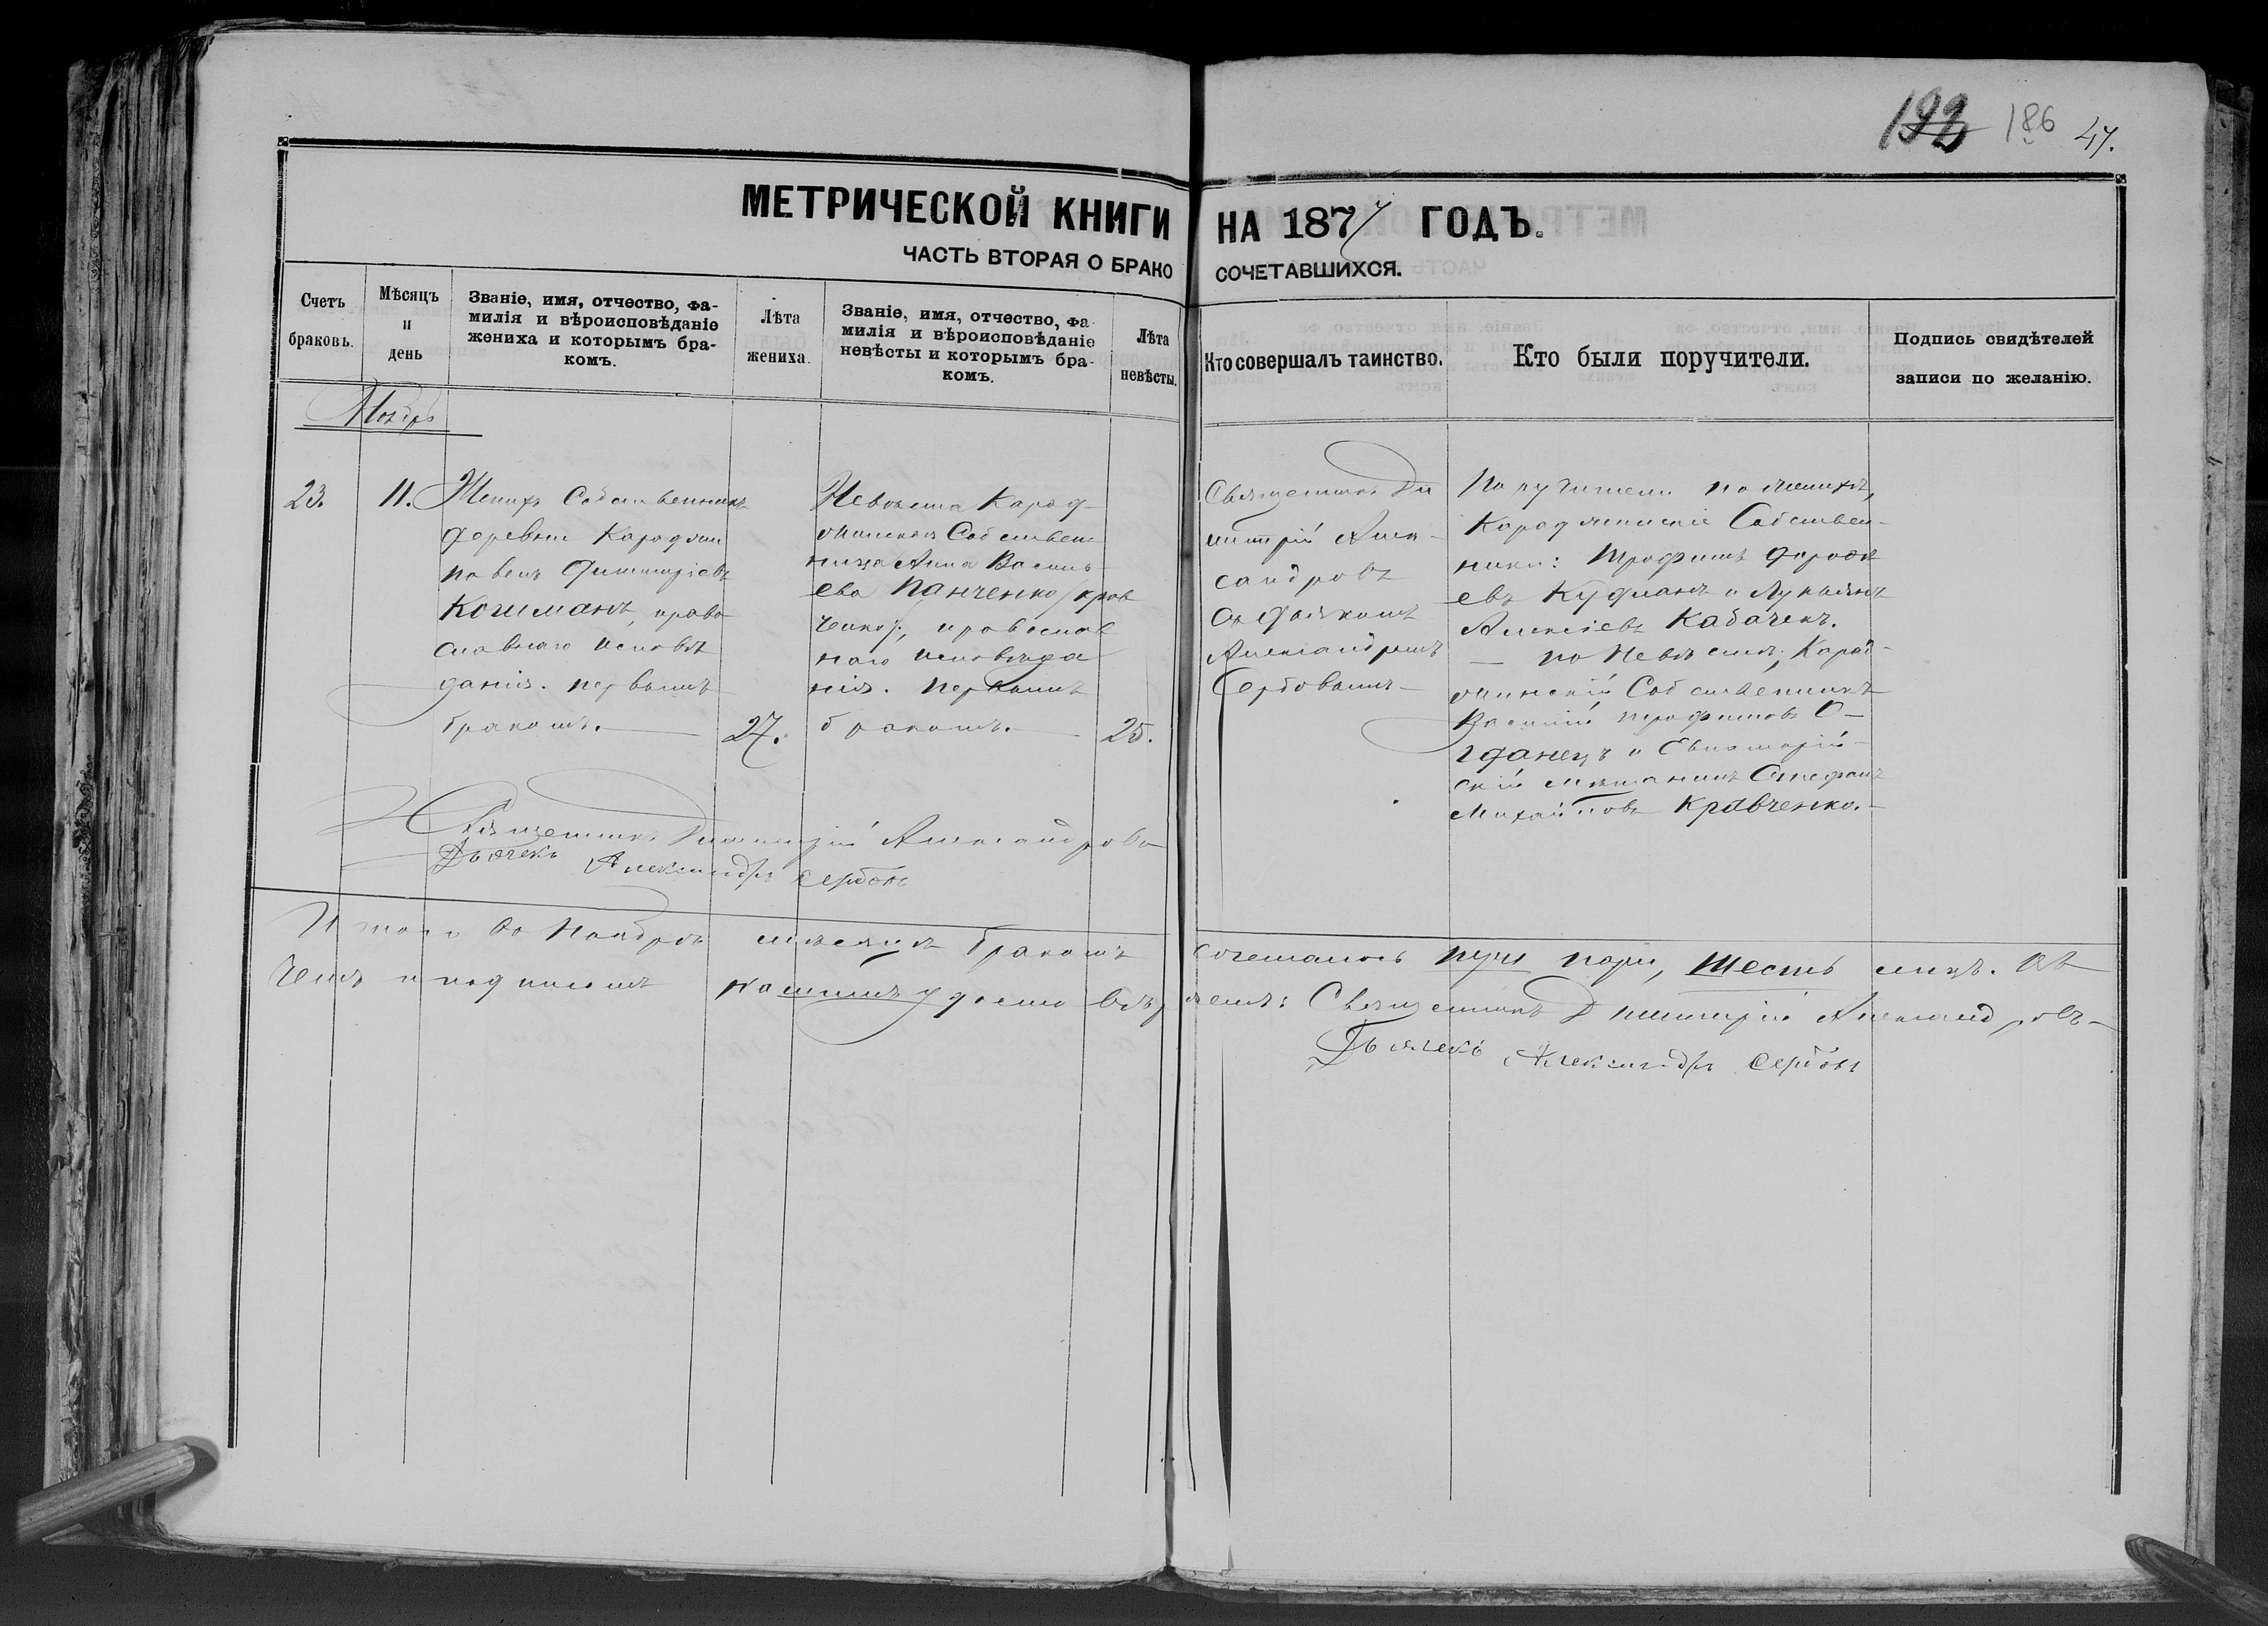 192 186 47.
МЕТРИЧЕСКОЙ КНИГИ НА 1877 ГОДЪ.
ЧАСТЬ ВТОРАЯ О БРАКОСОЧЕТАВШИХСЯ.
Счетъ браковъ.
Мѣсяцъ и день
Званіе, имя, отчество, фа-
милія и вѣроисповѣданіе
жениха и которымъ бра-
комъ.
Лѣта жениха.
Званіе, имя, отчество, фа-
милія и вѣроисповѣданіе
невѣсты и которымъ бра-
комъ.
Лѣта невѣсты.
Кто совершалъ таинство.
Кто были поручители.
Подпись свидѣтелей
записи по желанію.
Ноябрь
23.
11.
Женихъ Собственникъ
деревни
Павелъ Димитріевъ
Кошманъ, право-
славнаго исповѣ-
данія. первымъ
бракомъ.
27.
Невѣста Карад-
Собствен-
ница Анна Василь-
ева Панченко /Крав
ченко/, православ
наго исповѣда
нія. Первымъ
бракомъ.
25.
Священникъ Ди
митрій Алек-
сандровъ
съ дьячкомъ
Александромъ
Сербовымъ
Поручители по женихѣ,
Собствен-
ники: Трофимъ Фероѳе
евъ и Лукьянъ
Алексіевъ Кабачекъ.
— по Невѣстѣ; Карад-
Собственникъ
Василій Трофимовъ О-
гданецъ и Евпаторій-
скій мѣщанинъ Стефанъ
Михайловъ Кравченко.
Священникъ Димитрій Александровъ
Дьячекъ Александръ Сербовъ
Итого въ Ноябрѣ мѣсяцѣ бракомъ сочеталось три пары, шесть лицъ. Въ
чемъ и подписомъ нашимъ удосто вѣряемъ: Священникъ Димитрій Александровъ
Дьячекъ Александръ Сербовъ